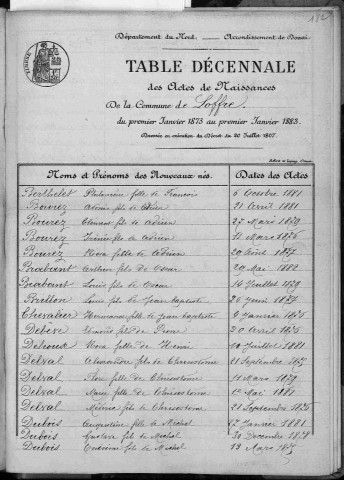 112
Département du Nord. Arrondissement de Douai.
TIMBRE
TABLE DÉCENNALE
des Actes de Naissances
De la Commune de Loffre.
du premier Janvier 1873 au premier Janvier 1883.
Dressée en exécution du Décret du 20 Juillet 1807.
Noms et Prénoms des Nouveaux-nés. Dates des Actes
Berthelet fille de Francois 6 Octobre 1881
Bourez fils de Adrien 21 Avril 1881
Bourez Clement fils de Adrien 27 Mars 1879
Bourez Irénée fils de Adrien 11 Mars 1876
Bourez Rosa fille de Adrien 29 Août 1877
Brabant Arthur fils de Oscar 29 Mai 1882
Brabant Louis fils de Oscar 14 Juillet 1879
Louis fils de Jean baptiste 28 Juin 1874
Chevalier Hermanne fille de Jean baptiste 9 Janvier 1876
Debève fils de Pierre 30 Avril 1875
fille de Henri 10 Juillet 1881
Delval Alexandre fils de Chrisostome 11 Septembre 1875
Delval Flore fille de Chrisostome 11 Mars 1879
Delval Marie fille de Chrisostome 1er Mai 1881
Delval fils de Chrisostome 21 Septembre 1876
Dubois Augustine fille de Michel 12 Janvier 1881
Dubois Gustave fils de Michel 30 Décembre 1878
Dubois fils de Michel 19 Mars 1875